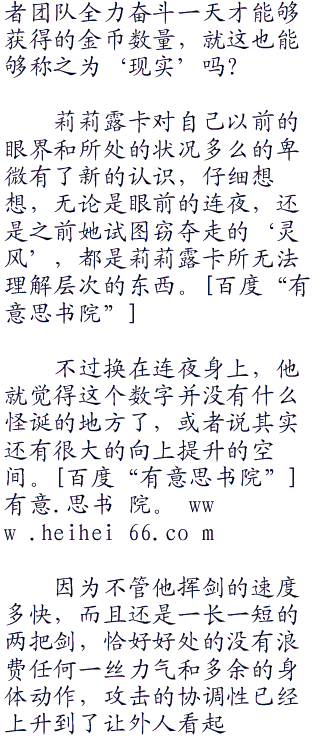 者团队全力奋斗一天才能够
获得的金币数量，就这也能
够称之为‘现实’吗？
莉莉露卡对自己以前的
眼界和所处的状况多么的卑
微有了新的认识，仔细想
想，无论是眼前的连夜，还
是之前她试图窃夺走的‘灵
风’，都是莉莉露卡所无法
理解层次的东西。[百度“有
意思书院”]
不过换在连夜身上，他
就觉得这个数字并没有什么
怪诞的地方了，或者说其实
还有很大的向上提升的空
间。[百度“有意思书院”]
有意.思书 院。 ww
w .heihei 66.co m
因为不管他挥剑的速度
多快，而且还是一长一短的
两把剑，恰好好处的没有浪
费任何一丝力气和多余的身
体动作，攻击的协调性已经
上升到了让外人看起